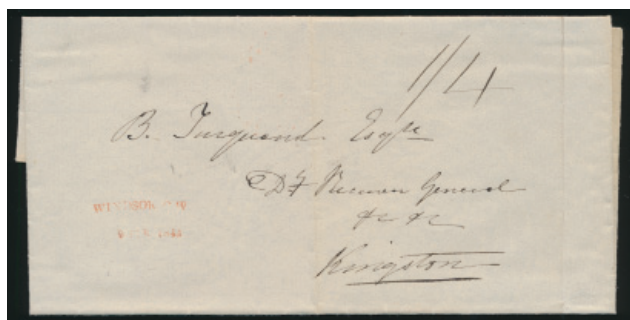 1/4
B. Turquand Esqre
Dy Receiver General
&c &c
Kingston
WINDSOR